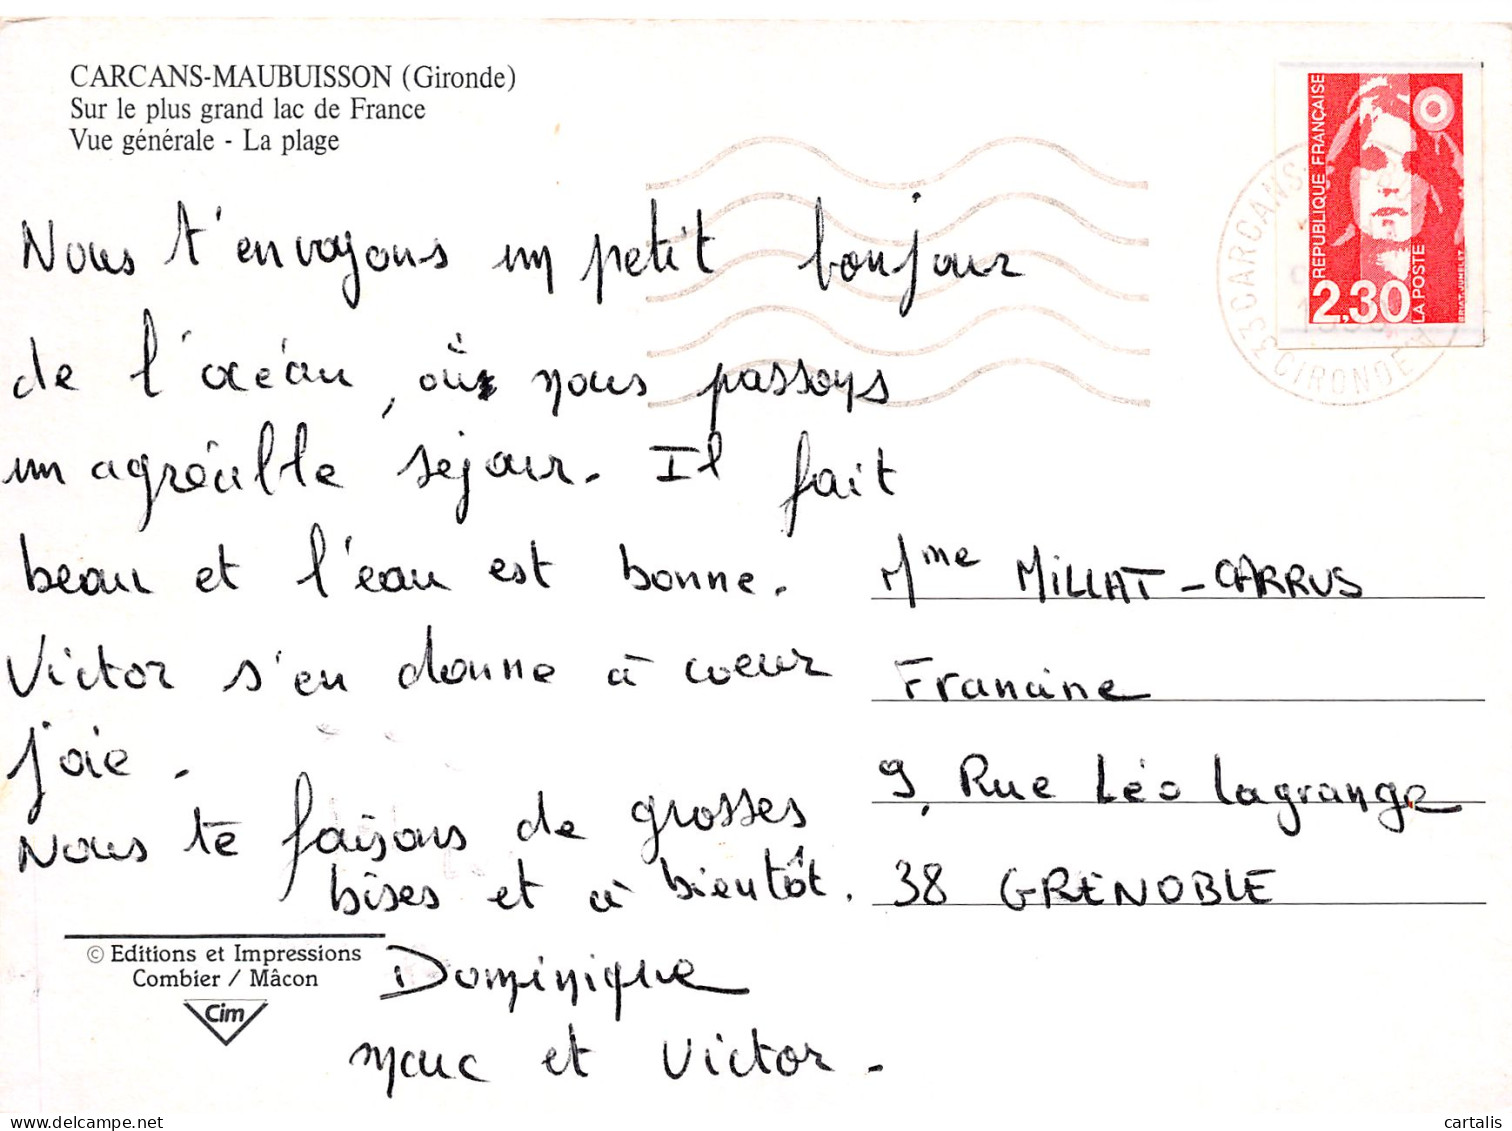 CARCANS-MAUBUISSON (Gironde)
Sur le plus grand lac de France
Vue générale - La plage
RÉPUBLIQUE FRANÇAISE
LA POSTE
2,30
BRIAT-JUMELET
33 CARCANS
GIRONDE
Nous t'envoyons un petit bonjour
de l'océan, où nous passons
un agréable séjour. Il fait
beau et l'eau est bonne.
Victor s'en donne à coeur
joie.
Nous te faisons de grosses
bises et à bientôt.
Dominique
Marc et Victor.
Mme MILLAT-CARRUS
Francine
9, Rue Léo Lagrange
38 GRENOBLE
© Editions et Impressions
Combier / Mâcon
Cim
delcampe.net
cartalis